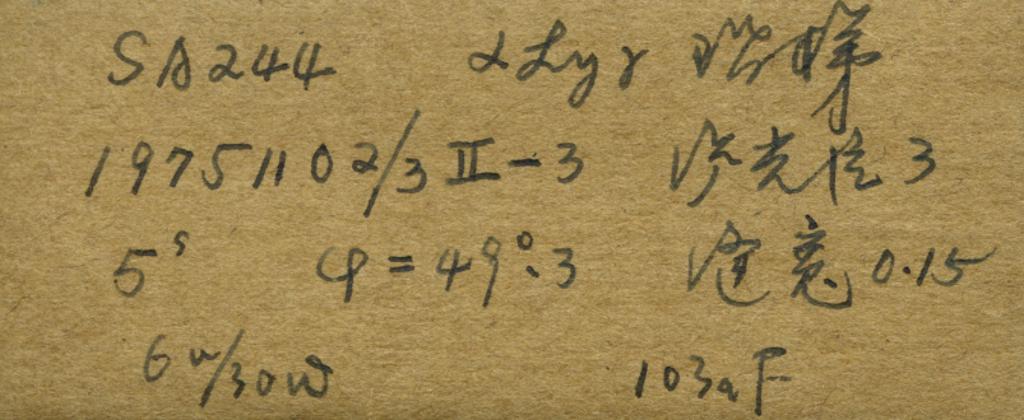 SA244 αLyr 阶梯
19751102/3 II-3 滤光片 3
5ˢ φ=49°.3 缝宽 0.15
6W/30W 103aF